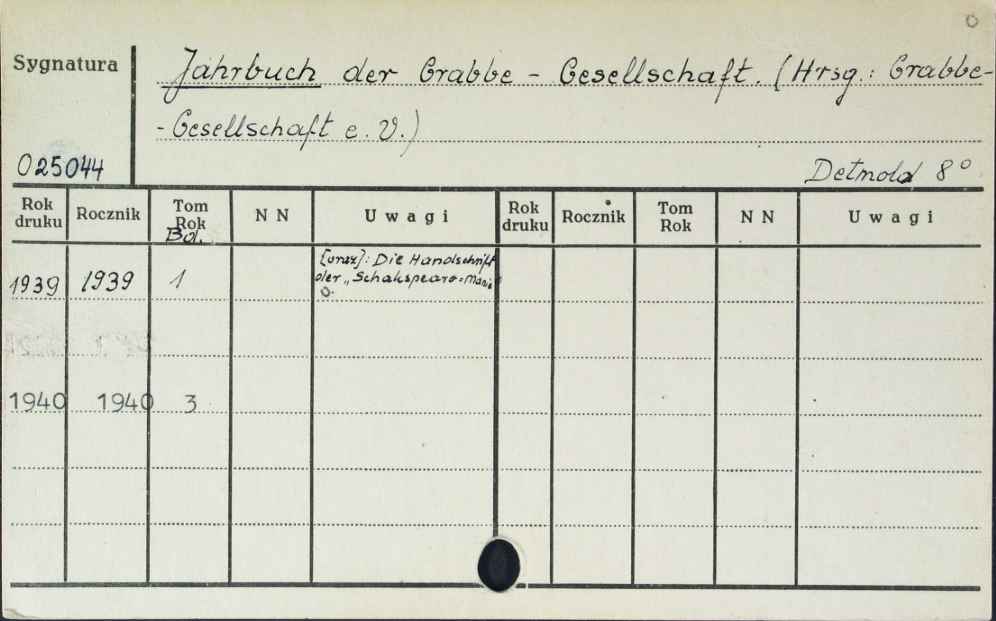 Sygnatura
Jahrbuch der Grabbe - Gesellschaft. (Hrsg.: Grabbe-
- Gesellschaft e. V.)
025044
Detmold 8°
Rok druku Rocznik Tom Rok Bd. N N Uwagi Rok druku Rocznik Tom Rok N N Uwagi
1939 1939 1 [oraz]: Die Handschrift
der „Schakspearo=Manie
1940 1940 3